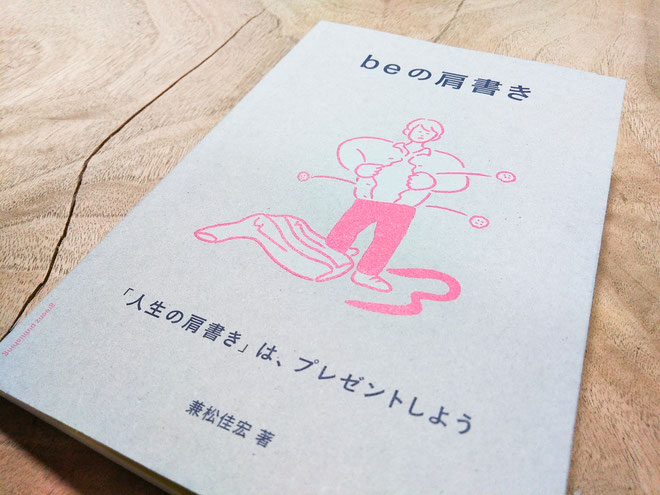 beの肩書き
「人生の肩書き」は、プレゼントしよう
兼松佳宏 著